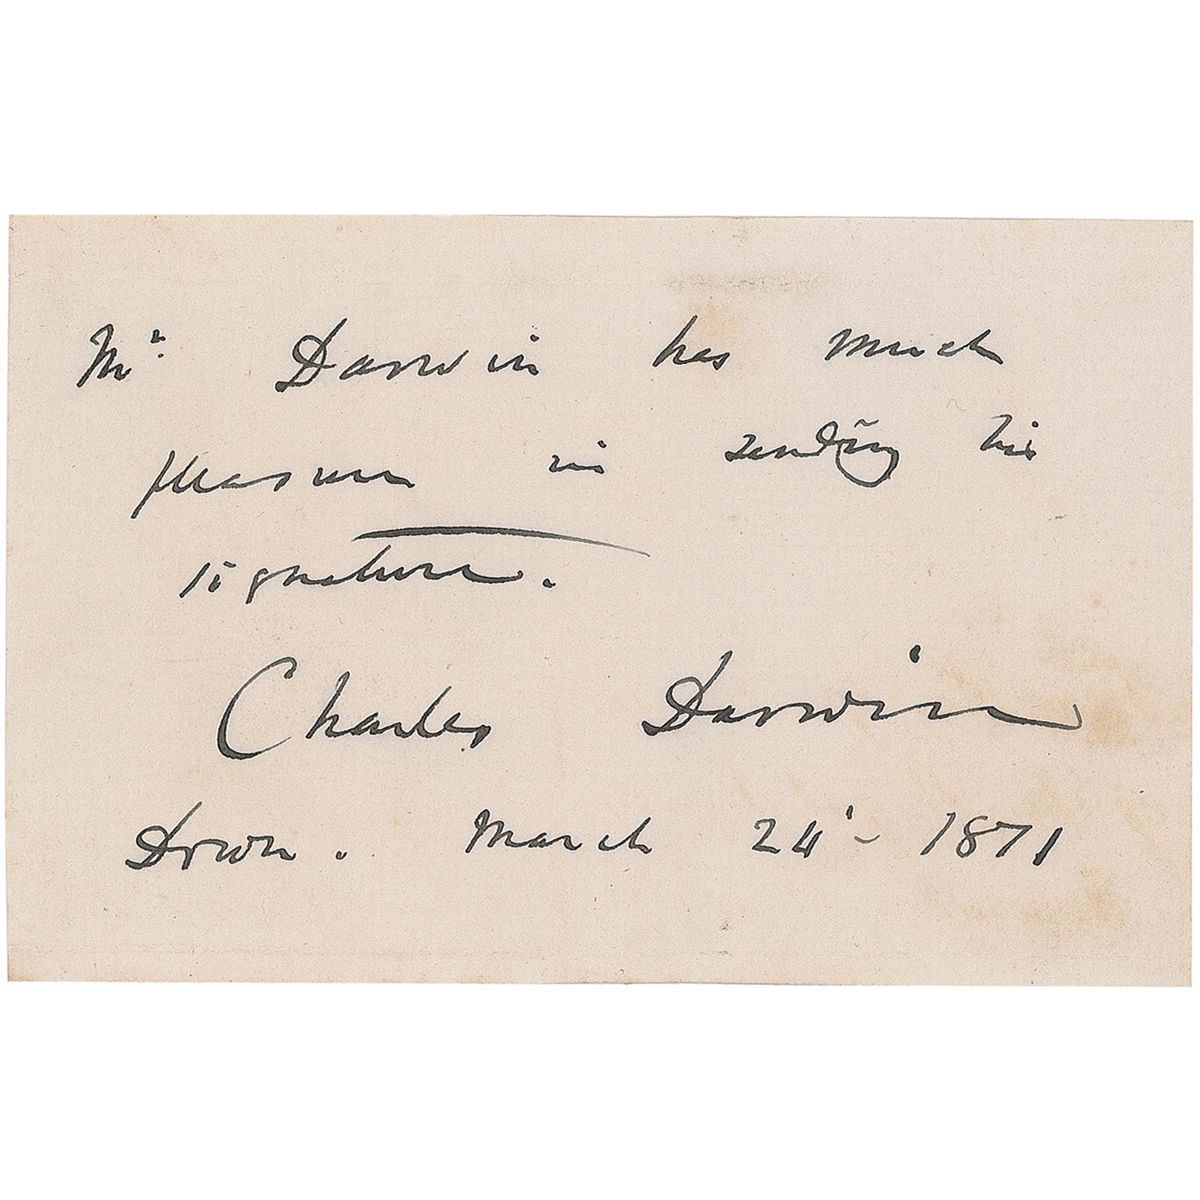 Mr. Darwin has much
pleasure in sending his
signature.
Charles Darwin
Down. March 24 - 1871